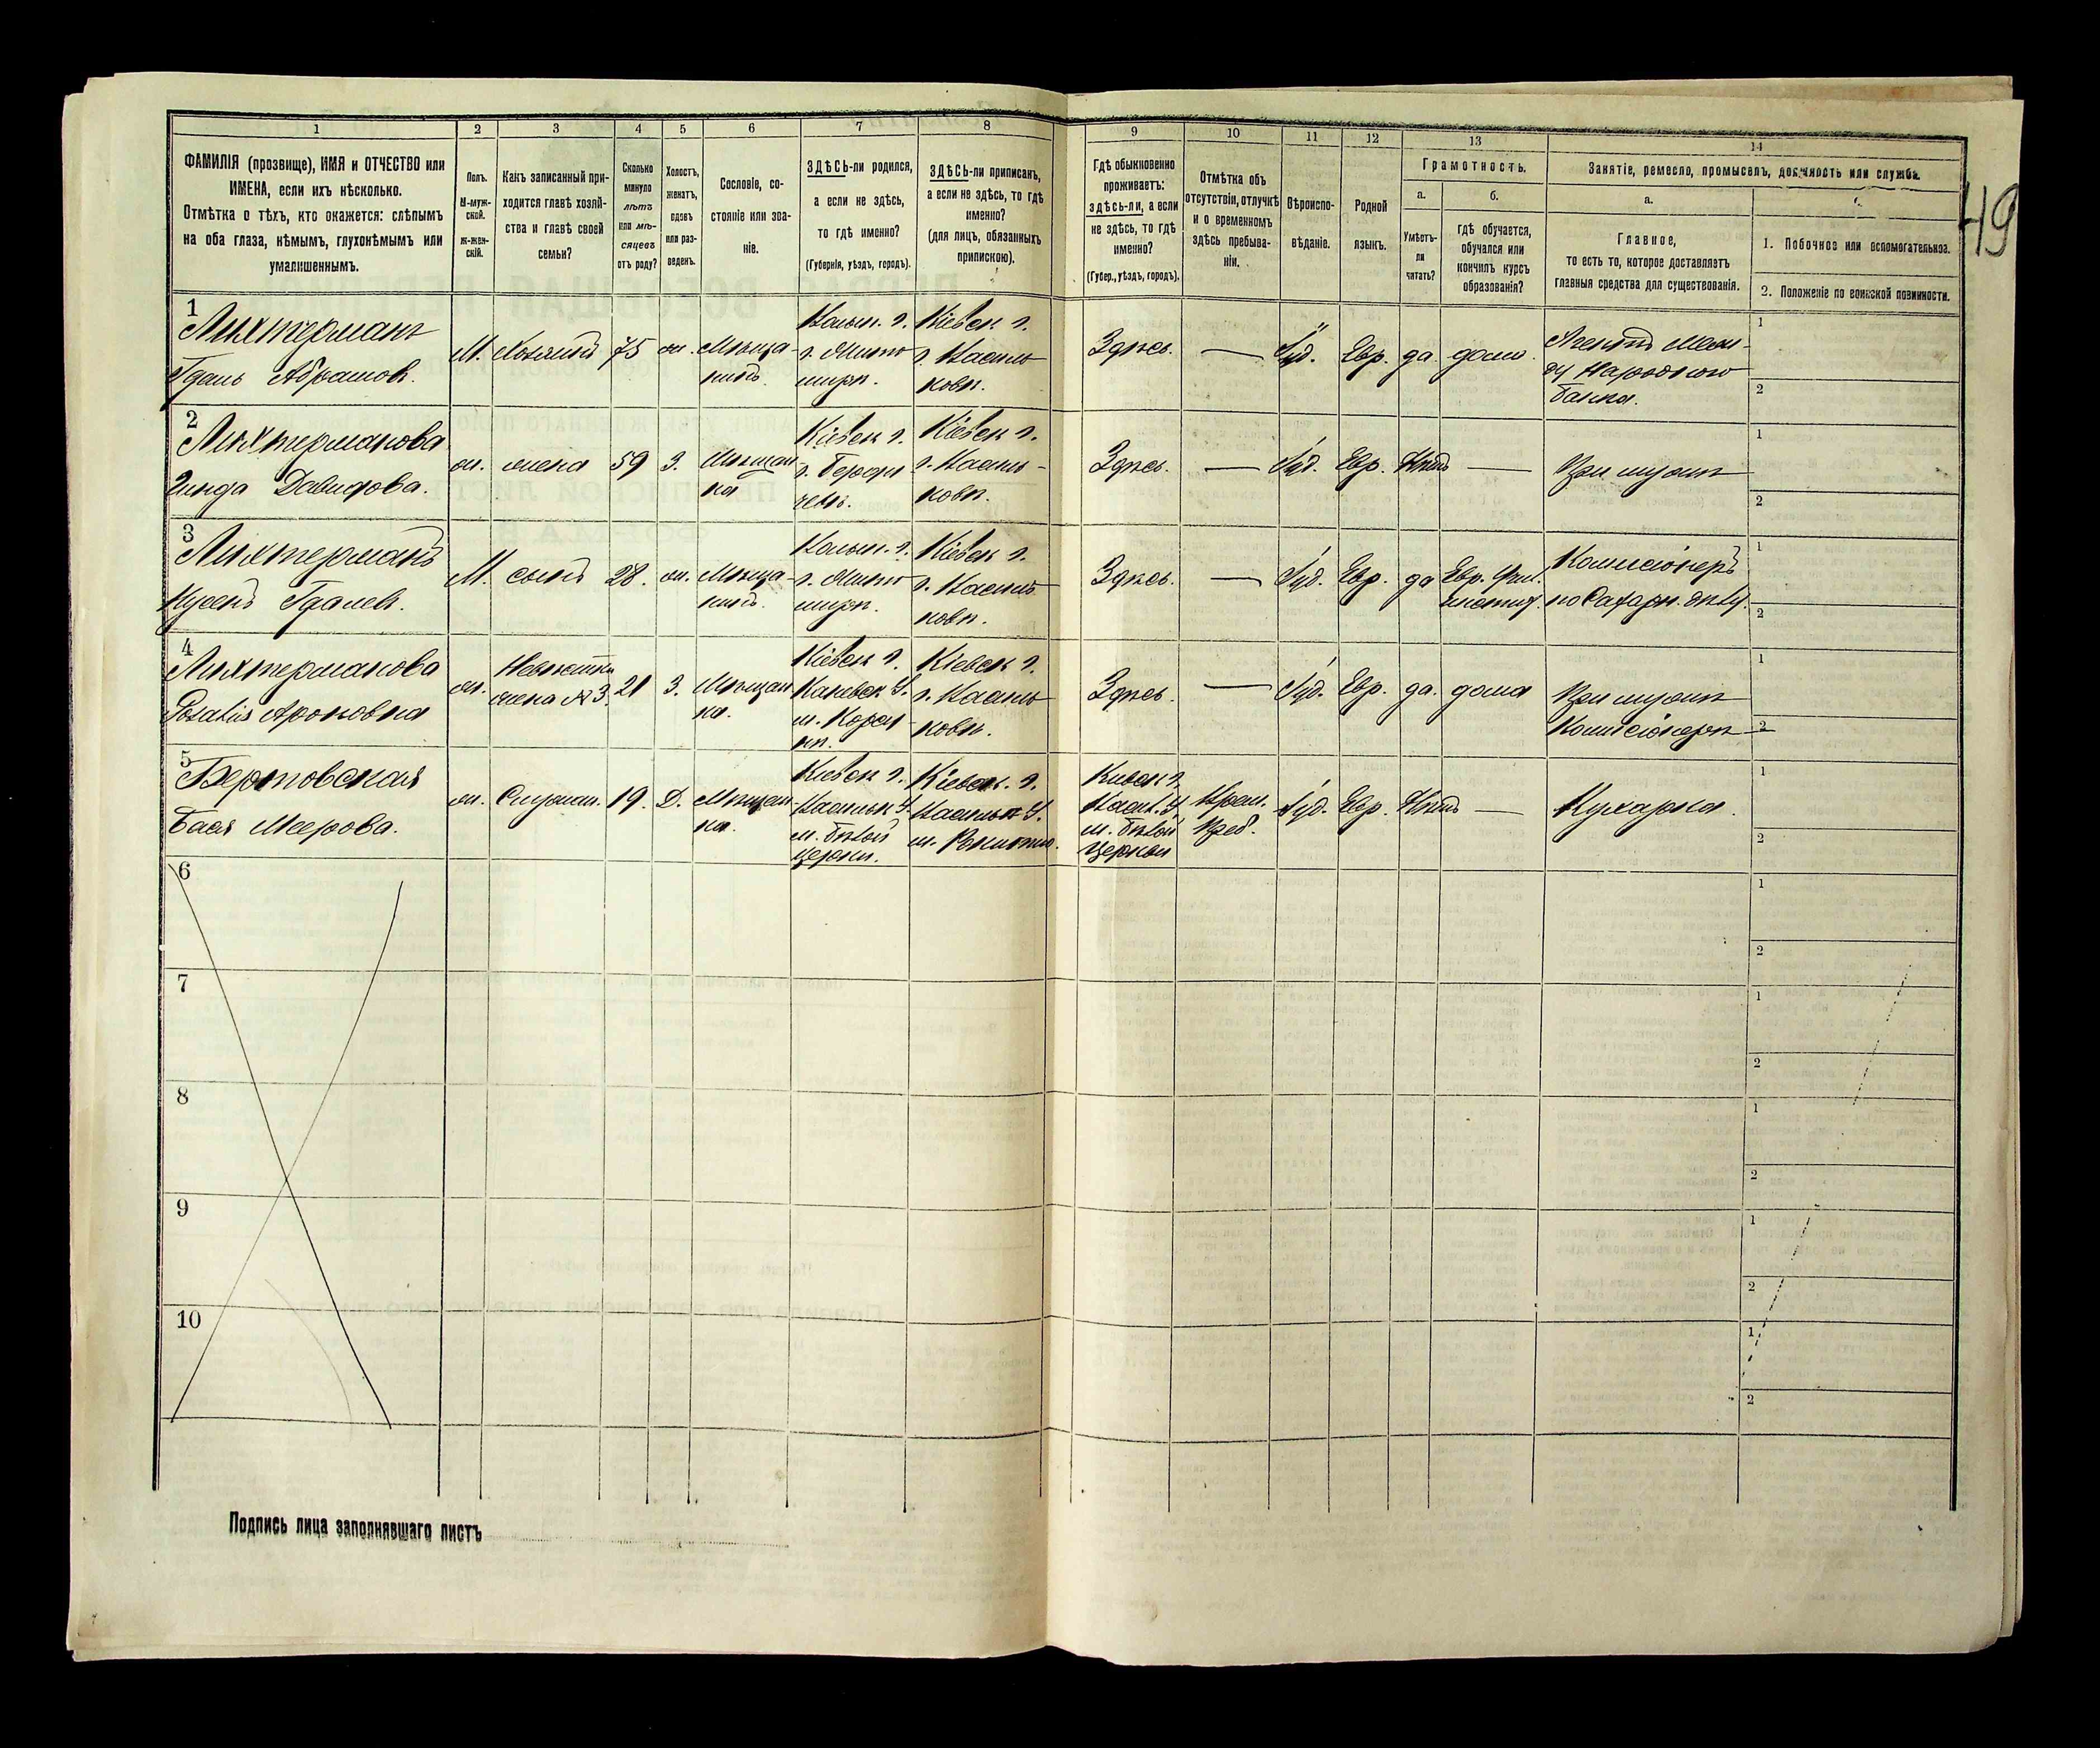 1 2 3 4 5 6 7 8 9 10 11 12 13 14
ФАМИЛІЯ (прозвище), ИМЯ и ОТЧЕСТВО или
ИМЕНА, если ихъ нѣсколько.
Отмѣтка о тѣхъ, кто окажется: слѣпымъ
на оба глаза, нѣмымъ, глухонѣмымъ или
умалишеннымъ.
Полъ.
М-муж-
ской.
ж-жен-
скій.
Какъ записанный при-
ходится главѣ хозяй-
ства и главѣ своей
семьи?
Сколько
минуло
лѣтъ
или мѣ-
сяцевъ
отъ роду?
Холостъ,
женатъ,
вдовъ
или раз-
веденъ.
Сословіе, со-
стояніе или зва-
ніе.
ЗДѢСЬ-ли родился,
а если не здѣсь,
то гдѣ именно?
(Губернія, уѣздъ, городъ).
ЗДѢСЬ-ли приписанъ,
а если не здѣсь, то гдѣ
именно?
(для лицъ, обязанныхъ
припискою).
Гдѣ обыкновенно
проживаетъ:
здѣсь-ли, а если
не здѣсь, то гдѣ
именно?
(Губер., уѣздъ, городъ).
Отмѣтка объ
отсутствіи, отлучкѣ
и о временномъ
здѣсь пребыва-
ніи.
Вѣроиспо-
вѣданіе.
Родной
языкъ.
Грамотность.
а.
Умѣетъ-
ли
читать?
б.
гдѣ обучается,
обучался или
кончилъ курсъ
образованія?
Занятіе, ремесло, промыселъ, должность или служба.
а.
Главное,
то есть то, которое доставляетъ
главныя средства для существованія.
1. Побочное или вспомогательное.
2. Положеніе по воинской повинности.
49
1
Лихтерманъ
Гдаль Абрамов.
М. Хозяинъ 75 ж. Мѣща-
нинъ.
Волын. г.
г. Жито-
мирѣ.
Кіевск г.
г. Василь-
ковѣ.
Здѣсь. — Іуд. Евр. да дома.
Агентъ
Народного
банка.
1
2
2
Лихтерманова
Давидова.
ж. жена 59 З. Мѣщан
ка
Кіевск г.
г. Берди
чевѣ.
Кіевск г.
г. Василь-
ковѣ.
Здѣсь. — Іуд. Евр. Нѣтъ —
При мужѣ
1
2
3
Лихтерманъ
Гдалев.
М. сынъ 28. ж. Мѣща-
нинъ.
Волын. г.
г. Жито
мирѣ.
Кіевск г.
г. Василь
ковѣ.
Здѣсь. — Іуд. Евр. да
Комисіонеръ
по Сахарн. дѣлу.
1
2
4
Лихтерманова
Ароновна
ж. Невѣстка
жена № 3. 21 З. Мѣщан
ка.
Кіевск г.
Каневск у.
м. Корсу-
нѣ.
Кіевск г.
г. Василь
ковѣ.
Здѣсь — Іуд. Евр. да. дома
При мужѣ
Комисіонерѣ
1
2
5
Бася Меерова.
ж. Служан. 19. Д. Мѣщан-
ка.
Кіевск г.
Васильк у.
м. Бѣлой
Церкви.
Кіевск. г.
Васильк у.
м. Рокитно.
Кіевск г.
Васил. у.
м. Бѣлой
Церкви
Врем.
Преб.
Іуд. Евр. Нѣтъ —
Кухарка.
1
2
6
1
2
7
1
2
8
1
2
9
1
2
10
1
2
Подпись лица заполнявшаго листъ